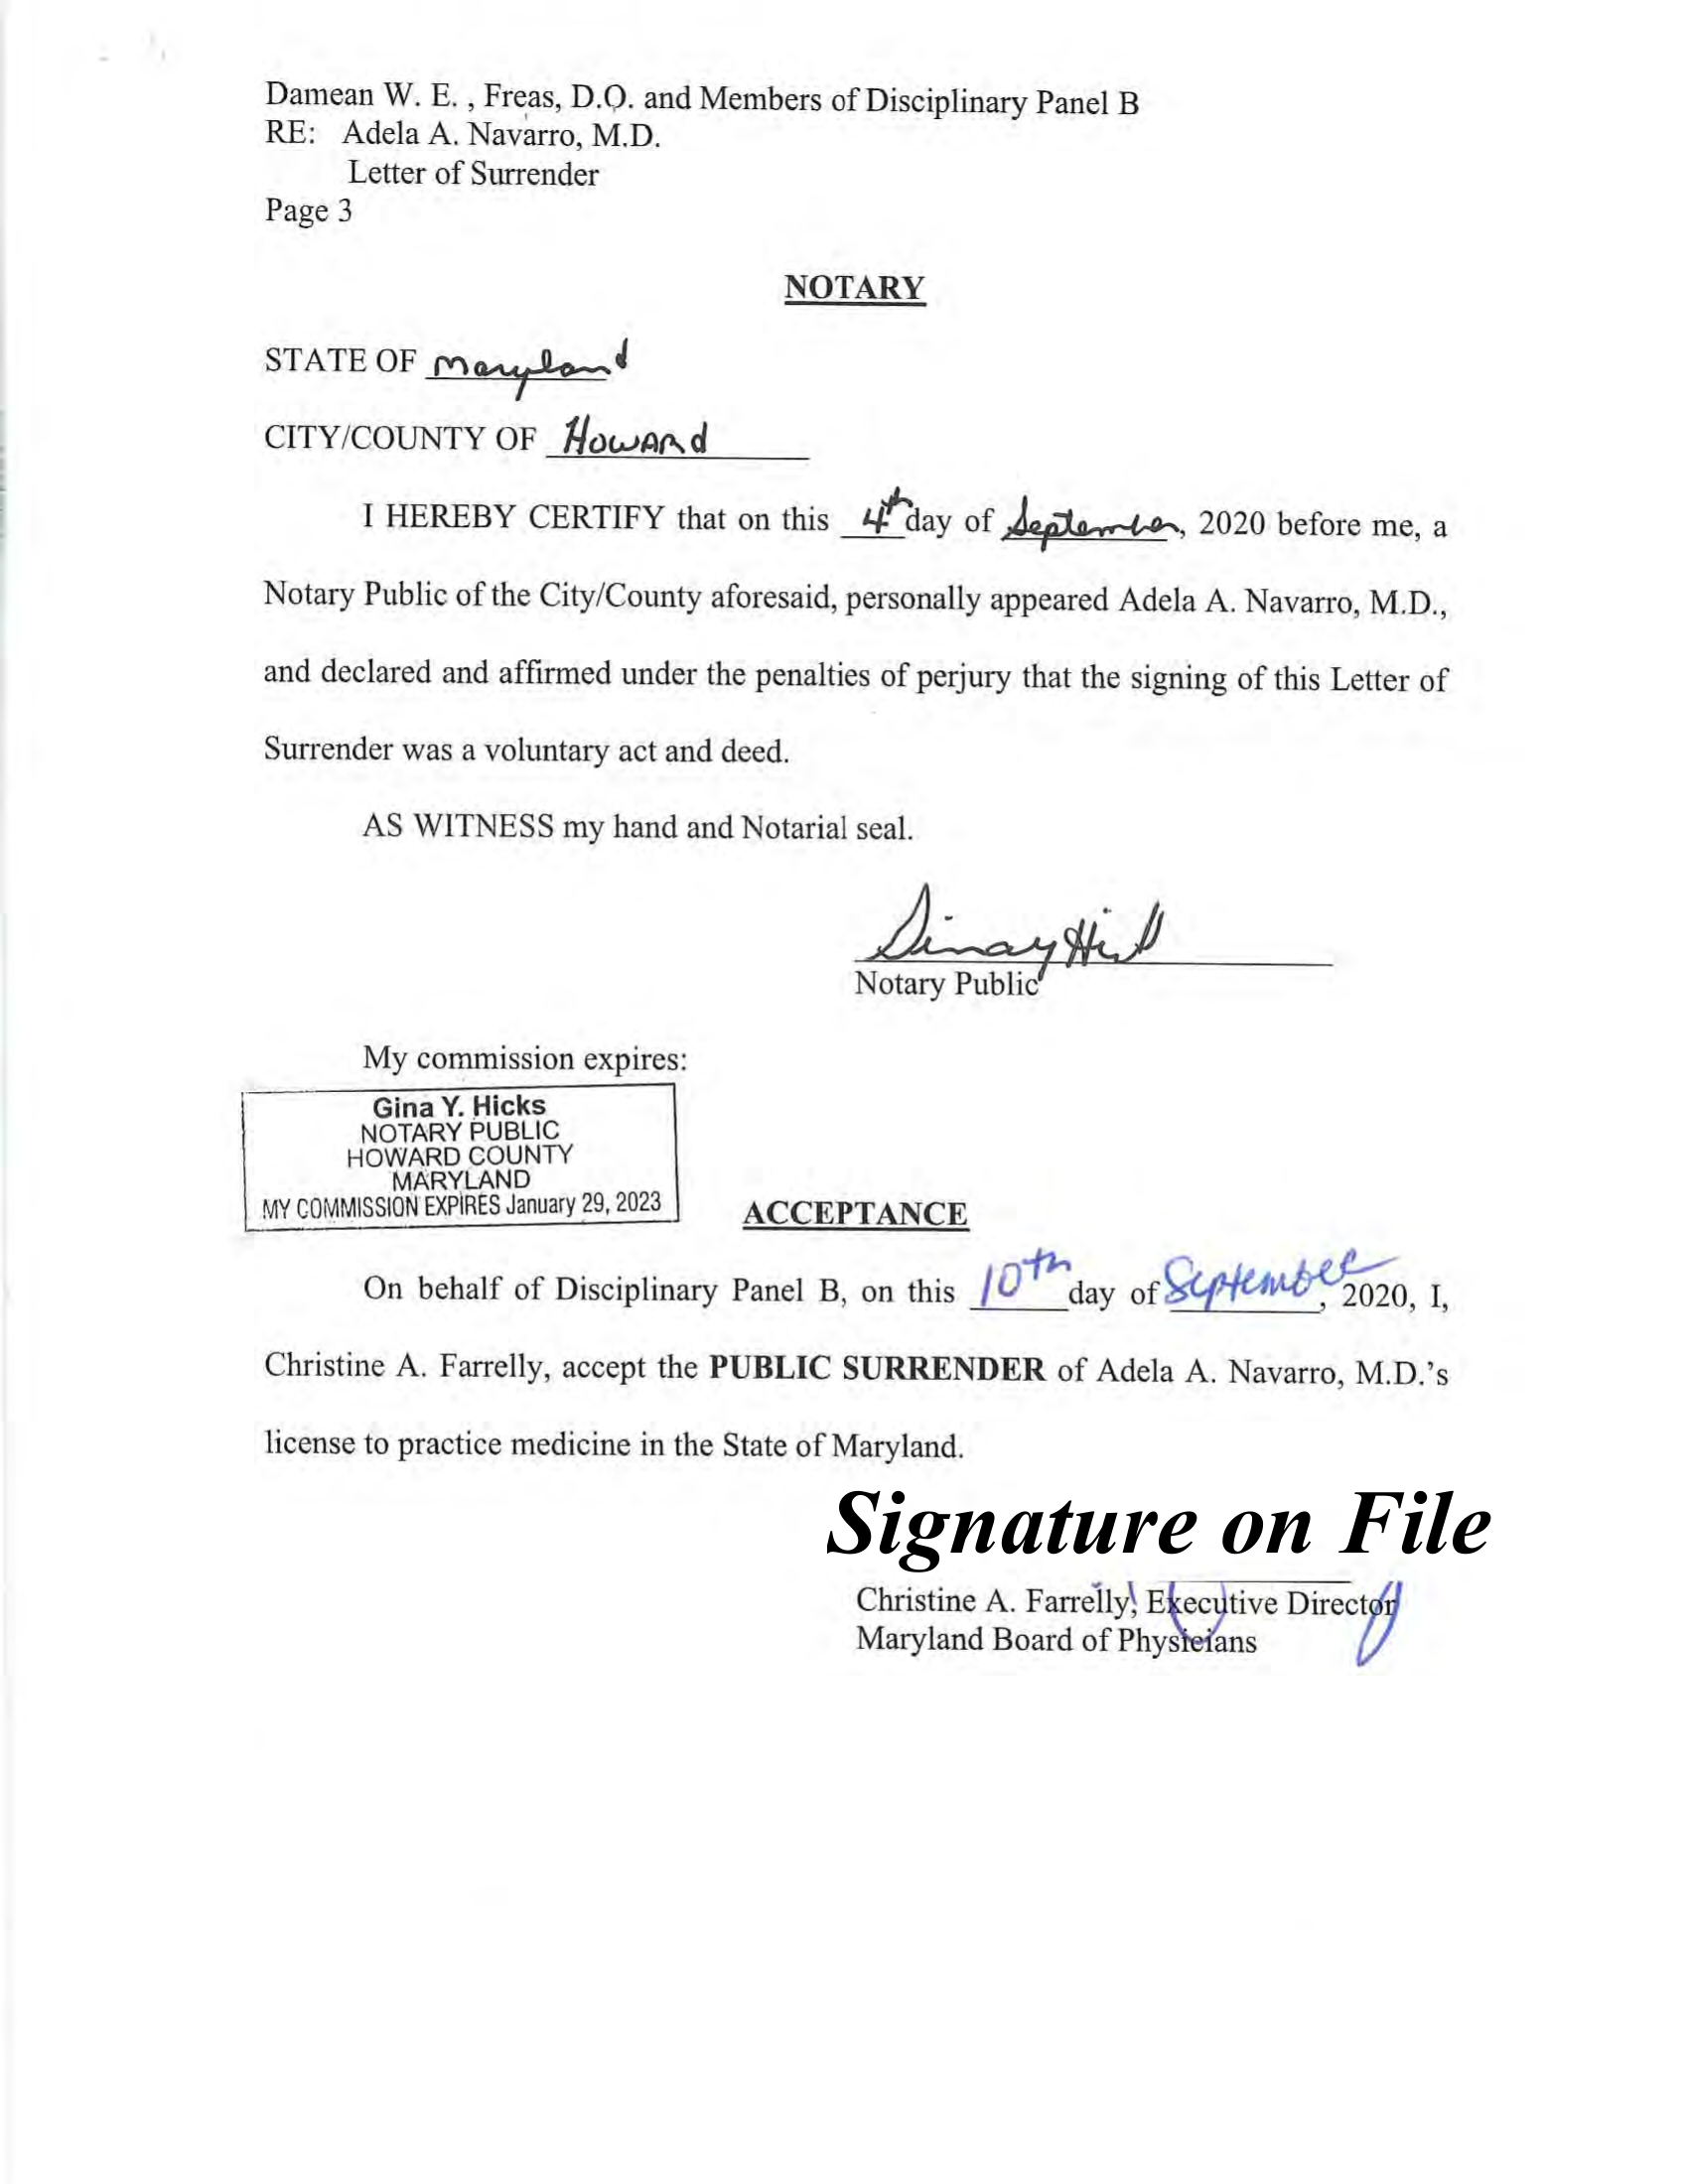 Damean W. E. , Freas, D.O. and Members of Disciplinary Panel B
RE: Adela A. Navarro, M.D.
Letter of Surrender
Page 3
NOTARY
STATE OF Maryland
CITY/COUNTY OF Howard
I HEREBY CERTIFY that on this 4th day of September, 2020 before me, a
Notary Public of the City/County aforesaid, personally appeared Adela A. Navarro, M.D.,
and declared and affirmed under the penalties of perjury that the signing of this Letter of
Surrender was a voluntary act and deed.
AS WITNESS my hand and Notarial seal.
Notary Public
My commission expires:
Gina Y. Hicks
NOTARY PUBLIC
HOWARD COUNTY
MARYLAND
MY COMMISSION EXPIRES January 29, 2023
ACCEPTANCE
On behalf of Disciplinary Panel B, on this 10th day of September, 2020, I,
Christine A. Farrelly, accept the PUBLIC SURRENDER of Adela A. Navarro, M.D.'s
license to practice medicine in the State of Maryland.
Signature on File
Christine A. Farrelly, Executive Director
Maryland Board of Physicians